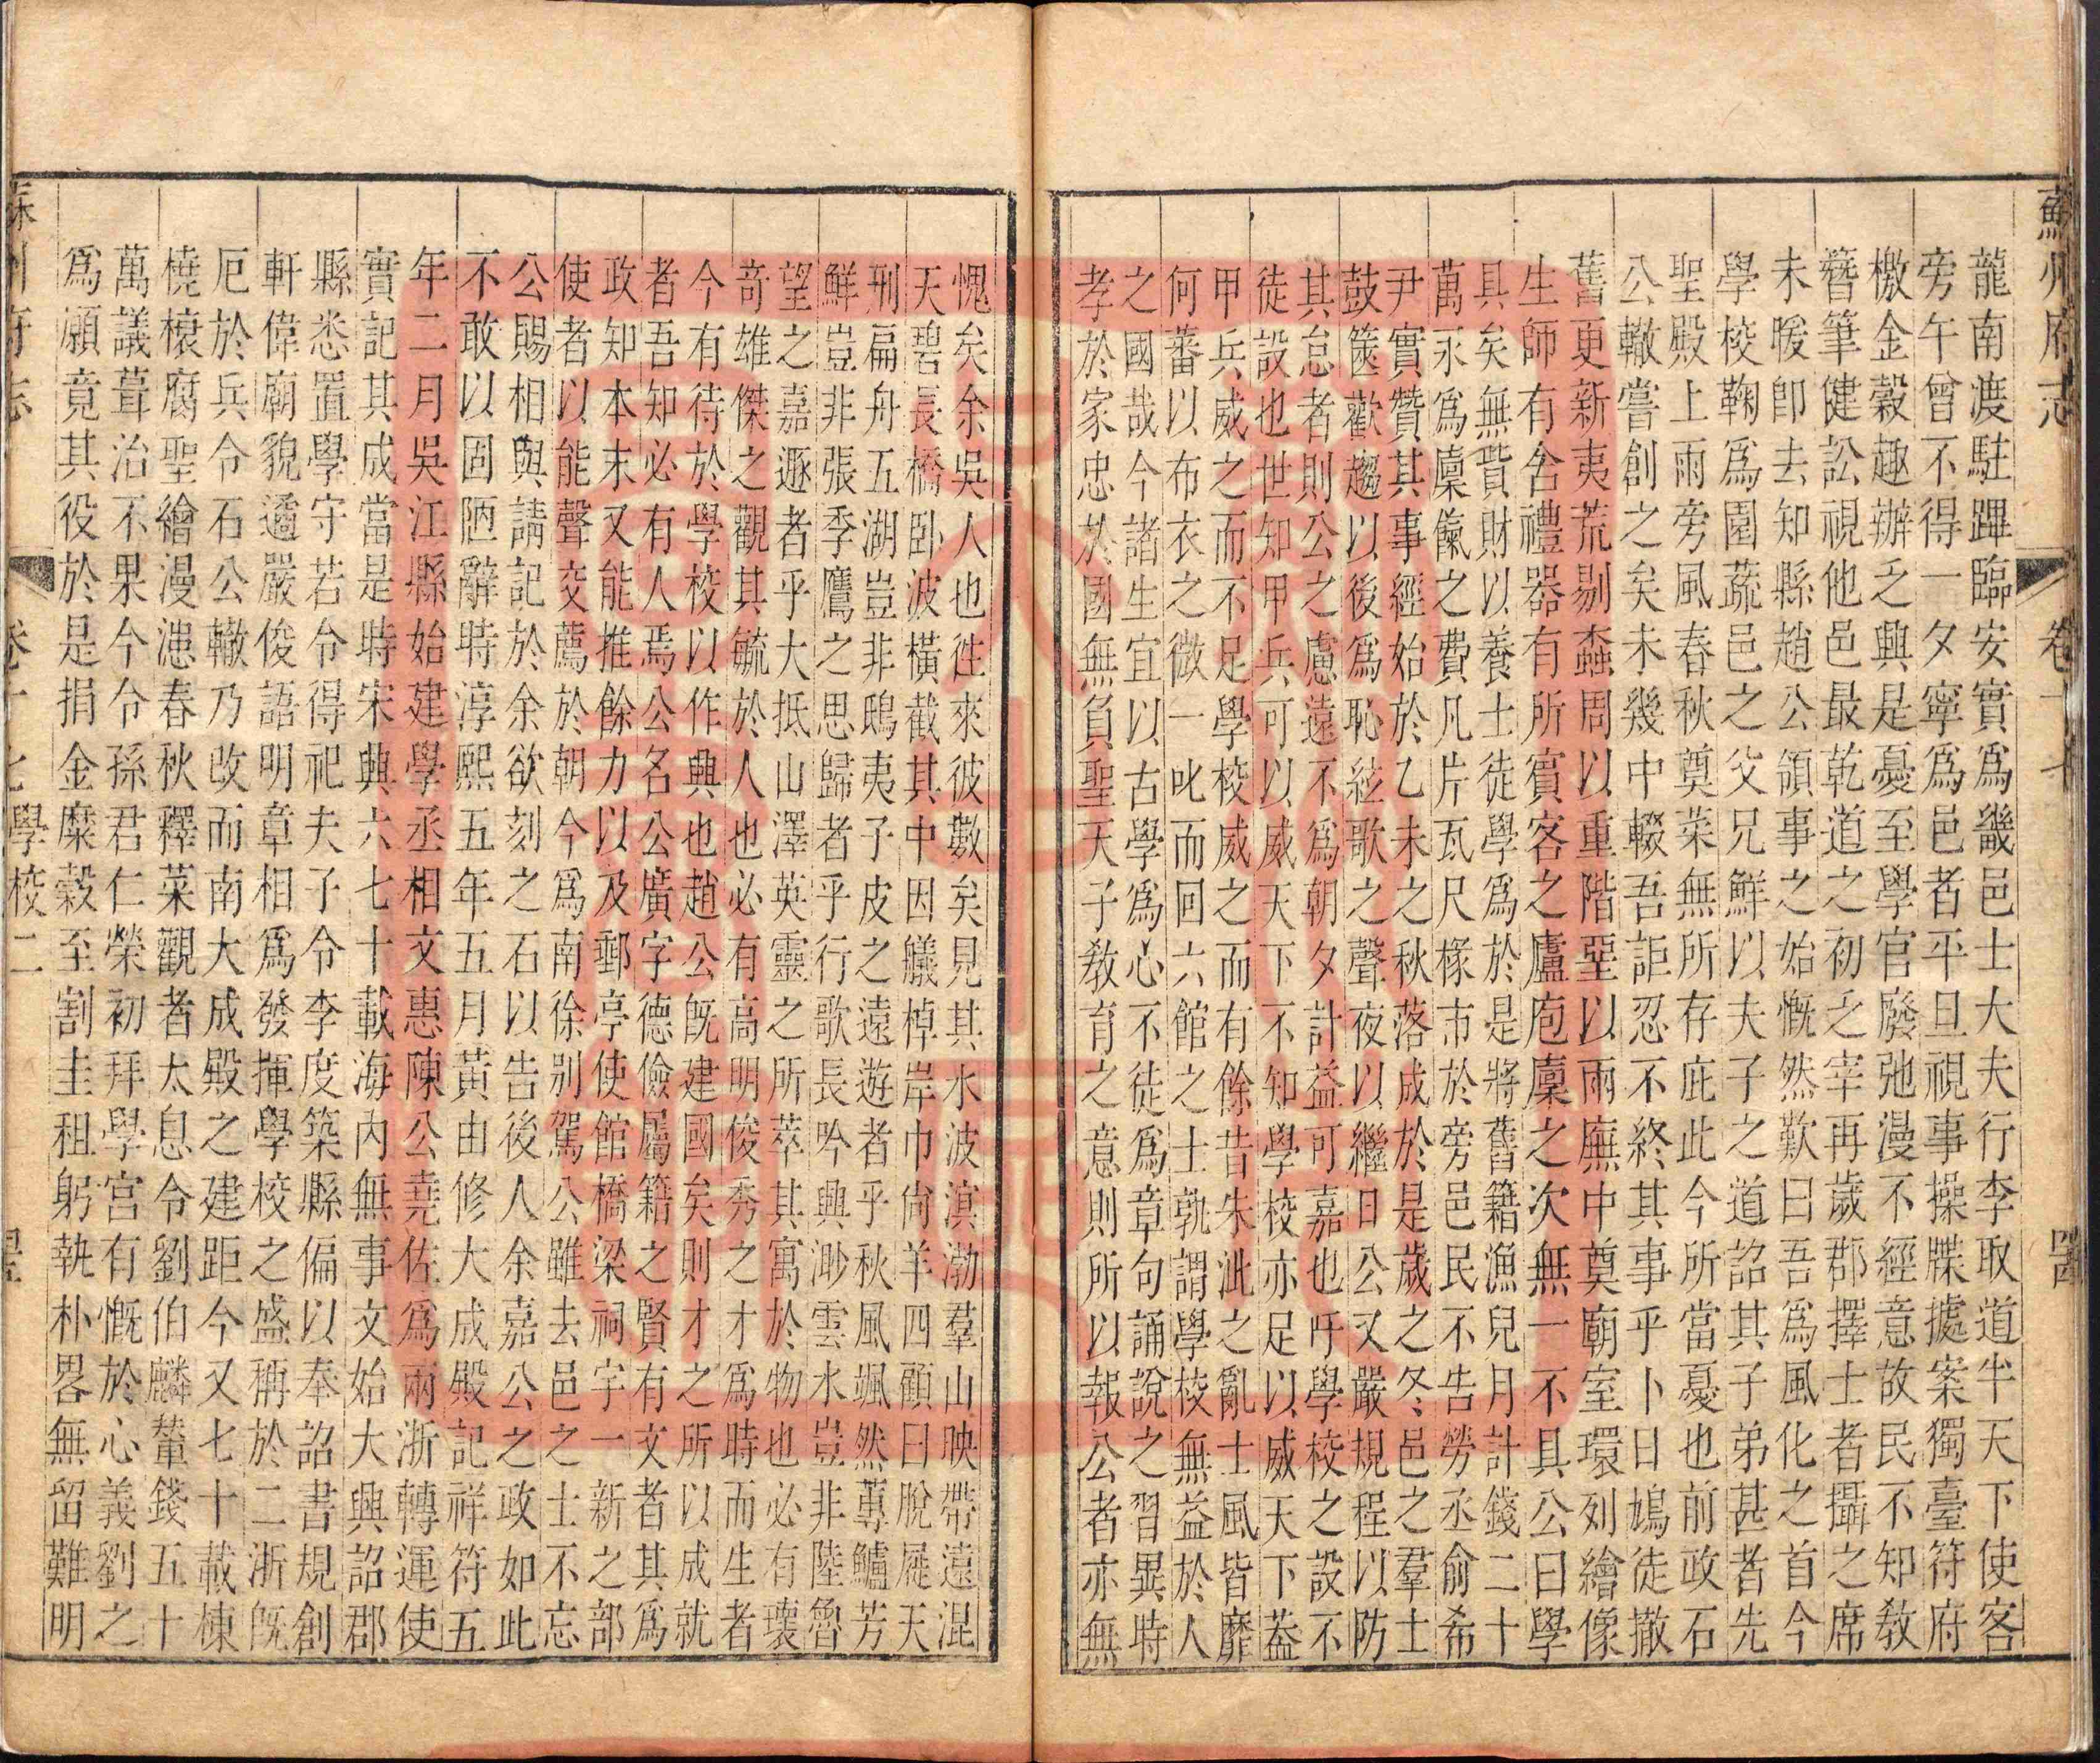 蘇州府志 卷十七 四四
龍南渡駐蹕臨安實爲畿邑士大夫行李取道半天下使客
旁午曾不得一夕寧爲邑者平旦視事操牒據案獨臺符府
檄金穀趣辦之興是憂至學官廢弛漫不經意故民不知敎
簪筆健訟視他邑最乾道之初乏宰再歲郡擇士者攝之席
未暖卽去知縣趙公領事之始慨然歎曰吾爲風化之首今
學校鞠爲園蔬邑之父兄鮮以夫子之道詔其子弟甚者先
聖殿上雨旁風春秋奠菜無所存庇此今所當憂也前政石
公轍嘗創之矣未幾中輟吾詎忍不終其事乎卜日鳩徒撤
舊更新夷荒剔蠹周以重階堊以兩廡中奠廟室環列繪像
生師有舍禮器有所賓客之廬庖廩之次無一不具公曰學
具矣無貲財以養士徒學爲於是將舊籍漁兒月計錢二十
萬永爲廩餼之費凡片瓦尺椽市於旁邑民不告勞丞俞希
尹實贊其事經始於乙未之秋落成於是歲之冬邑之羣士
鼓篋歡趨以後爲恥絃歌之聲夜以繼日公又嚴規程以防
其怠者則公之慮遠不爲朝夕計益可嘉也吁學校之設不
徒設也世知甲兵可以威天下不知學校亦足以威天下葢
甲兵威之而不足學校威之而有餘昔朱泚之亂士風皆靡
何蕃以布衣之微一叱而回六館之士孰謂學校無益於人
之國哉今諸生宜以古學爲心不徒爲章句誦說之習異時
孝於家忠於國無負聖天子敎育之意則所以報公者亦無
愧矣余吳人也徃來彼數矣見其水波溟渤羣山映帶遠混
天碧長橋卧波橫截其中因艤棹岸巾尙羊四顧曰脫屣天
刑扁舟五湖豈非鴟夷子皮之遠遊者乎秋風颯然蓴鱸芳
鮮豈非張季鷹之思歸者乎行歌長吟興渺雲水豈非陸魯
望之嘉遯者乎大抵山澤英靈之所萃其寓於物也必有瓌
奇雄傑之觀其毓於人也必有高明俊秀之才爲時而生者
今有待於學校以作興也趙公旣建國矣則才之所以成就
者吾知必有人焉公名公廣字德儉屬籍之賢有文者其爲
政知本末又能推餘力以及郵亭使館橋梁祠宇一新之部
使者以能聲交薦於朝今爲南徐别駕公雖去邑之士不忘
公賜相與請記於余欲刻之石以告後人余嘉公之政如此
不敢以固陋辭時淳熙五年五月黃由修大成殿記祥符五
年二月吳江縣始建學丞相文惠陳公堯佐爲兩浙轉運使
實記其成當是時宋興六七十載海內無事文始大興詔郡
縣悉置學守若令得祀夫子令李度築縣偏以奉詔書規創
軒偉廟貌遹嚴俊語明章相爲發揮學校之盛稱於二浙旣
厄於兵令石公轍乃改而南大成殿之建距今又七十載棟
橈榱腐聖繪漫漶春秋釋菜觀者太息令劉伯麟輦錢五十
萬議葺治不果今令孫君仁榮初拜學宮有慨於心義劉之
爲願竟其役於是捐金糜穀至割圭租躬執朴畧無留難明
蘇州府志 卷十七 學校二 四五